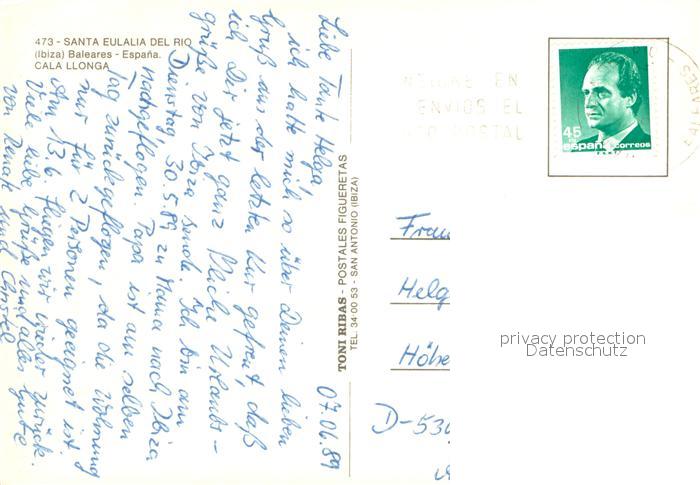 473 - SANTA EULALIA DEL RIO
(Ibiza) Baleares - España.
CALA LLONGA
07.06.89
Liebe Tante Helga!
ich hatte mich so über Deinen lieben
Gruß aus der letzten Kur gefreut, daß
ich Dir jetzt ganz liebe Urlaubs-
grüße von Ibiza sende. Ich bin am
Dienstag 30.5.89 zu Mama nach Ibiza
nachgeflogen. Papa ist am selben
Tag zurückgeflogen, da die Wohnung
nur für 2 Personen geeignet ist.
Am 13.6. fliegen wir wieder zurück.
Viele liebe Grüße und alles Gute
von Renate und
TONI RIBAS - POSTALES FIGUERETAS
TEL. 34 00 53 - SAN ANTONIO (IBIZA)
EN
ENVIOS EL
POSTAL
45
españa correos
Frau
Helg
Höhe
D-530
privacy protection
Datenschutz